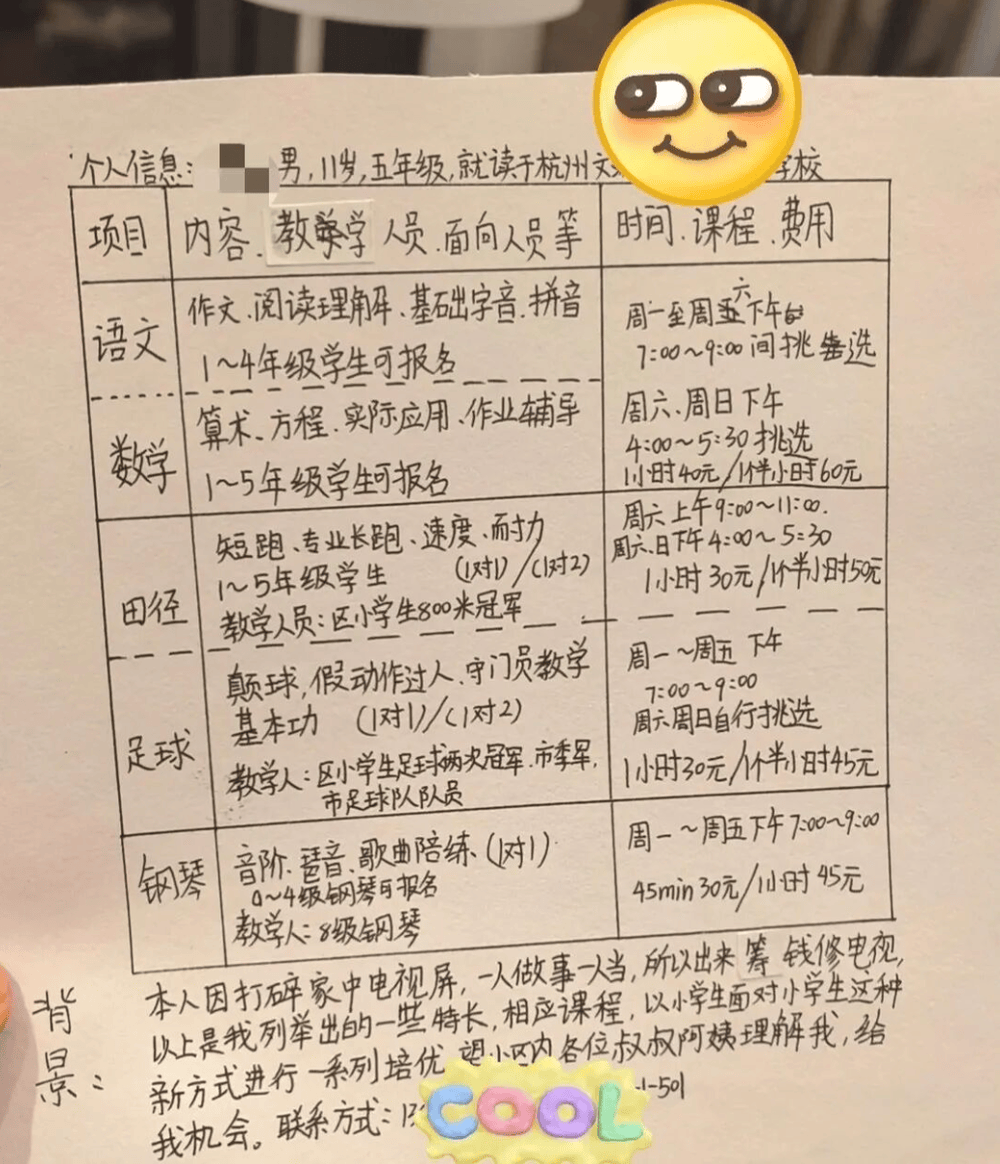 个人信息: 男,11岁,五年级,就读于杭州文 学校
项目
内容、教学人员、面向人员等
时间、课程、费用
语文
作文、阅读理解、基础字音、拼音
1~4年级学生可报名
周一至周六下午
7:00~9:00间挑选
数学
算术、方程、实际应用、作业辅导
1~5年级学生可报名
周六、周日下午
4:00~5:30挑选
1小时40元/1个半小时60元
田径
短跑、专业长跑、速度、耐力
1~5年级学生 (1对1)/(1对2)
教学人员:区小学生800米冠军
周六上午9:00~11:00.
周六、日下午4:00~5:30
1小时30元/1个半小时50元
足球
颠球,假动作过人、守门员教学
基本功 (1对1)/(1对2)
教学人:区小学生足球两次冠军、市季军,
市足球队队员
周一~周五下午
7:00~9:00
周六周日自行挑选
1小时30元/1个半小时45元
钢琴
音阶、琶音、歌曲陪练、(1对1)
0~4级钢琴可报名
教学人:8级钢琴
周一~周五下午7:00~9:00
45min30元/1小时45元
背景:
本人因打碎家中电视屏,一人做事一人当,所以出来筹钱修电视,
以上是我列举出的一些特长,相应课程,以小学生面对小学生这种
新方式进行一系列培优,望小区内各位叔叔阿姨理解我,给
我机会。联系方式:13 -1-501
COOL